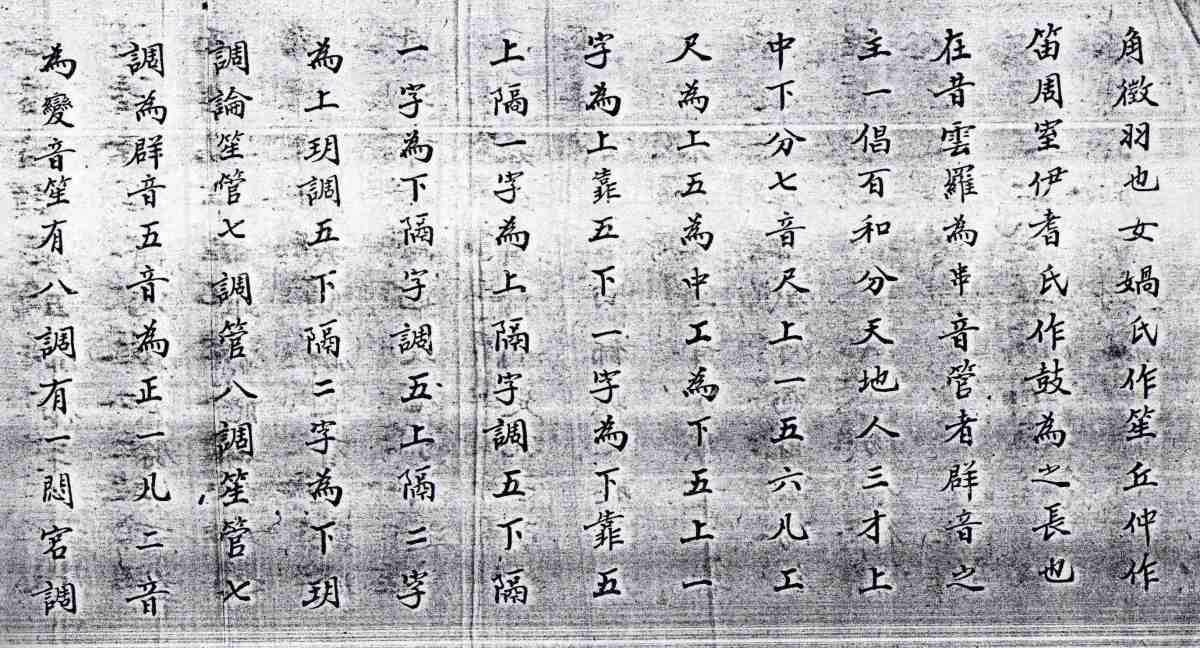 角徵羽也女媧氏作笙丘仲作
笛周室伊耆氏作鼓為之長也
在昔雲羅為串音管者群音之
主一倡百和分天地人三才上
中下分七音尺上一五六凡工
尺為上五為中工為下五上一
字為上靠五下一字為下靠五
上隔一字為上隔字調五下隔
一字為下隔字調五上隔二字
為上玥調五下隔二字為下玥
調論笙管七調管八調笙管七
調為群音五音為正一凡二音
為變音笙有八調有一悶宮調